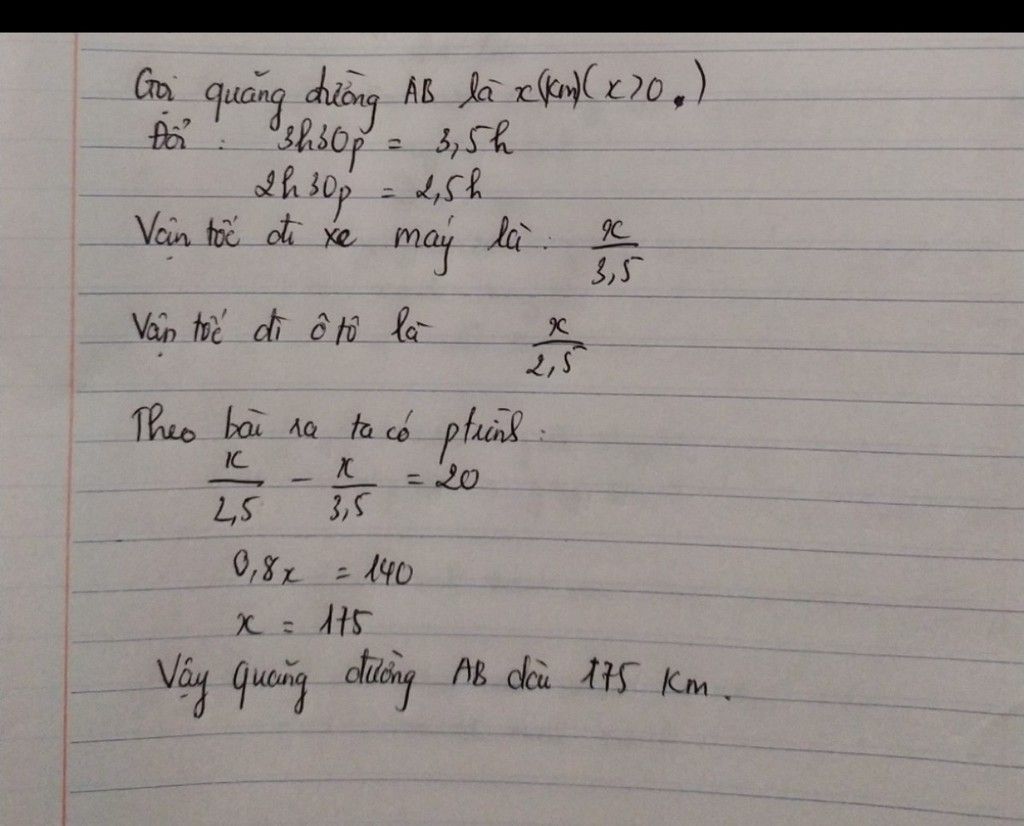 Gọi quãng đường AB là x(km)(x>0.)
Đổi : 3h30p = 3,5h
2h30p = 2,5h
Vận tốc đi xe máy là : x/3,5
Vận tốc đi ô tô là x/2,5
Theo bài ra ta có ptrình :
x/2,5 - x/3,5 = 20
0,8x = 140
x = 175
Vậy quãng đường AB dài 175 Km.